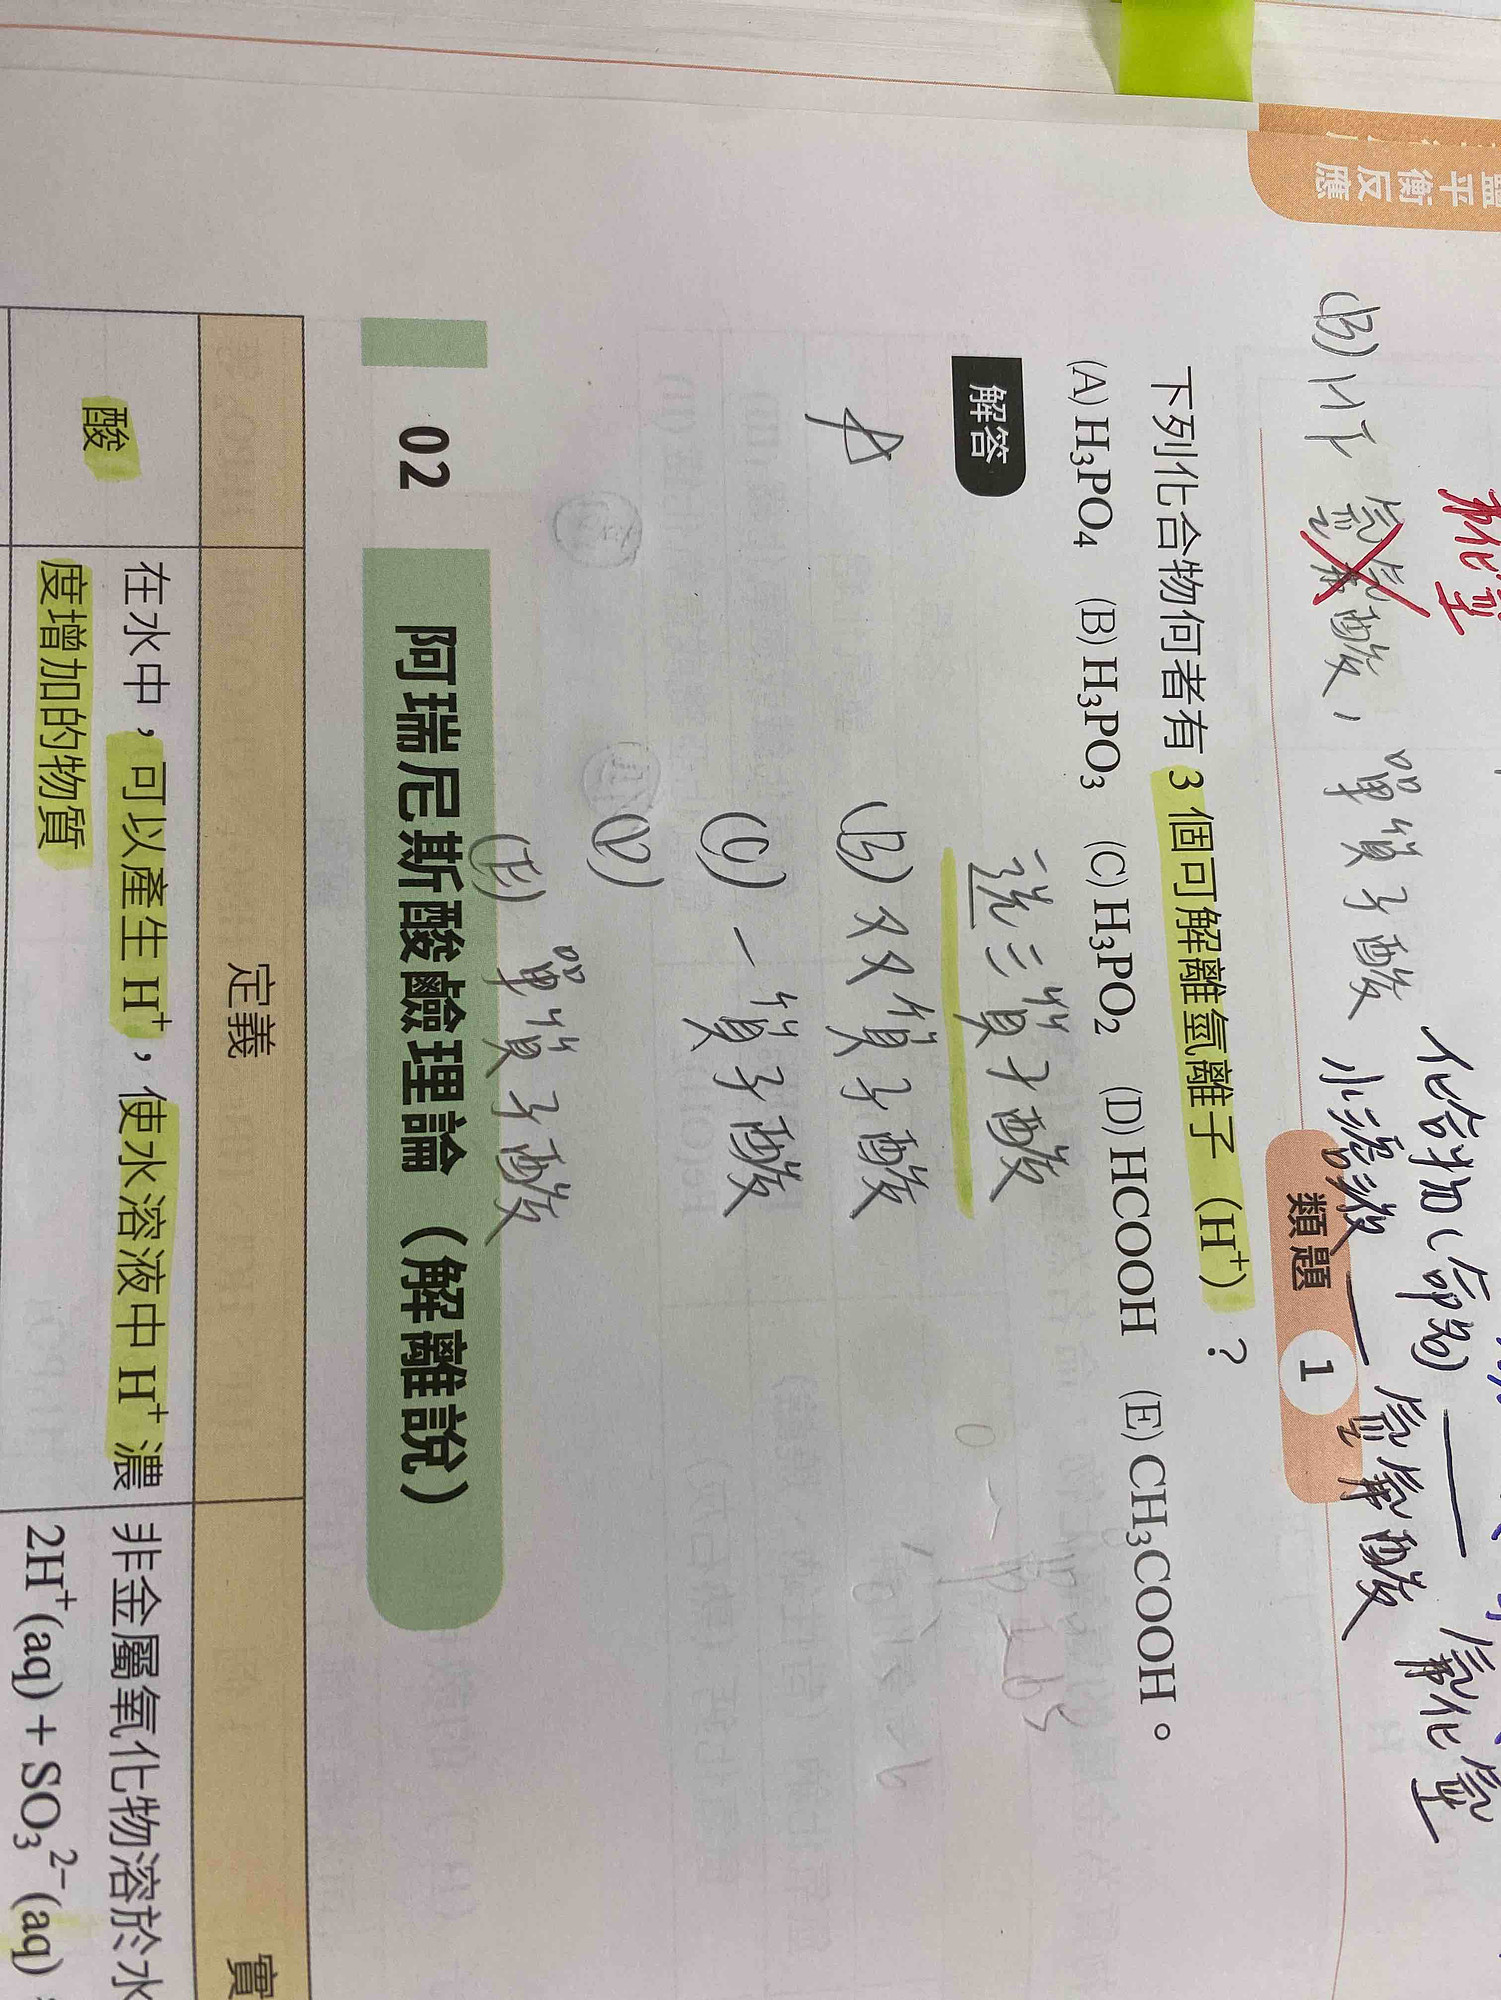 鹽平衡反應
氟化氫
化合物(命名) —— 氟化氫
(B) HF 氫氟酸，單質子酸 水溶液 —— 氫氟酸
類題 1
下列化合物何者有 3 個可解離氫離子（H⁺）？
(A) H₃PO₄ (B) H₃PO₃ (C) H₃PO₂ (D) HCOOH (E) CH₃COOH。
解答
選三質子酸
A
(B) 双質子酸
(C) 一質子酸
(D)
(E) 單質子酸
02 阿瑞尼斯酸鹼理論（解離說）
定義 實
酸
在水中，可以產生 H⁺，使水溶液中 H⁺ 濃
度增加的物質
非金屬氧化物溶於水
2H⁺(aq) + SO₃²⁻(aq)